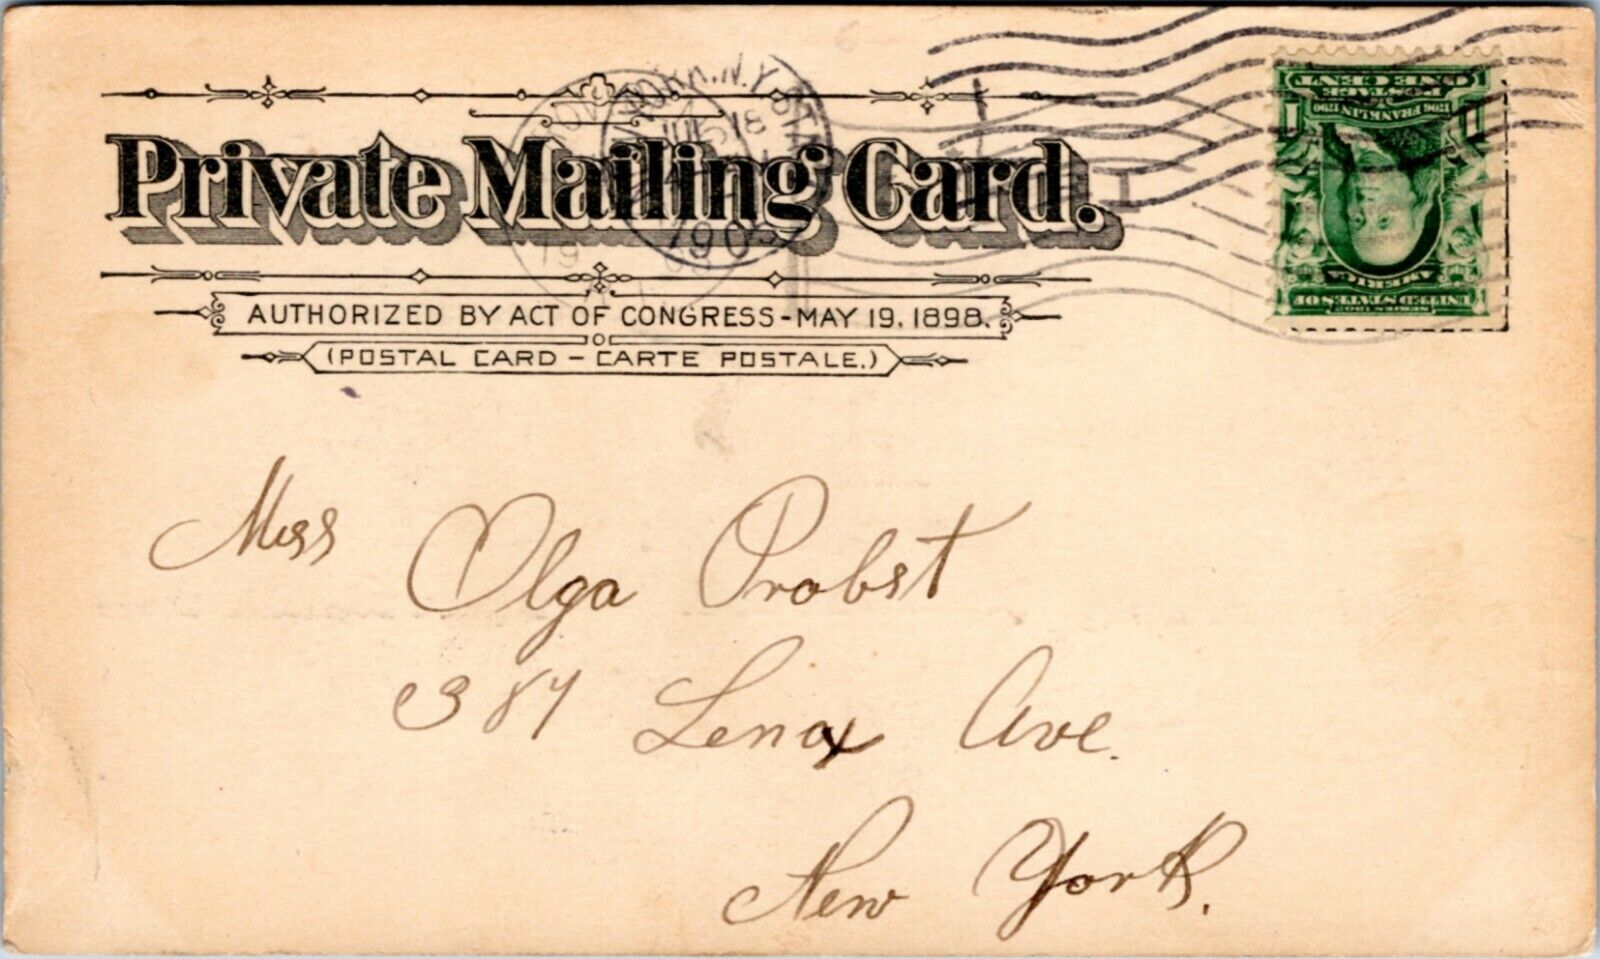 Private Mailing Card.
AUTHORIZED BY ACT OF CONGRESS-MAY 19, 1898.
(POSTAL CARD - CARTE POSTALE.)
N.Y. STA
190
19
SERIES 1902
UNITED STATES OF
AMERICA
1706 FRANKLIN 1790
POSTAGE
1 ONE CENT 1
Miss Olga Probst
387 Lenox Ave.
New York.